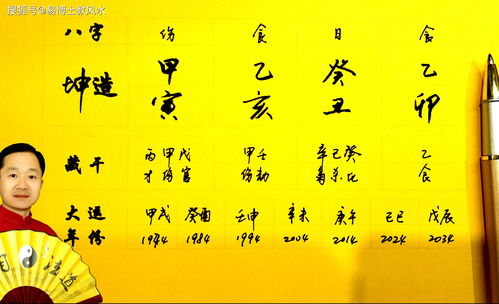 搜狐号@易博士救风水
八字 伤 食 日 食
坤造 甲 乙 癸 乙
寅 亥 丑 卯
藏干 丙甲戊 甲壬 辛己癸 乙
才伤官 伤劫 枭杀比 食
大运 甲戌 癸酉 壬申 辛未 庚午 己巳 戊辰
年份 1974 1984 1994 2004 2014 2024 2034
道